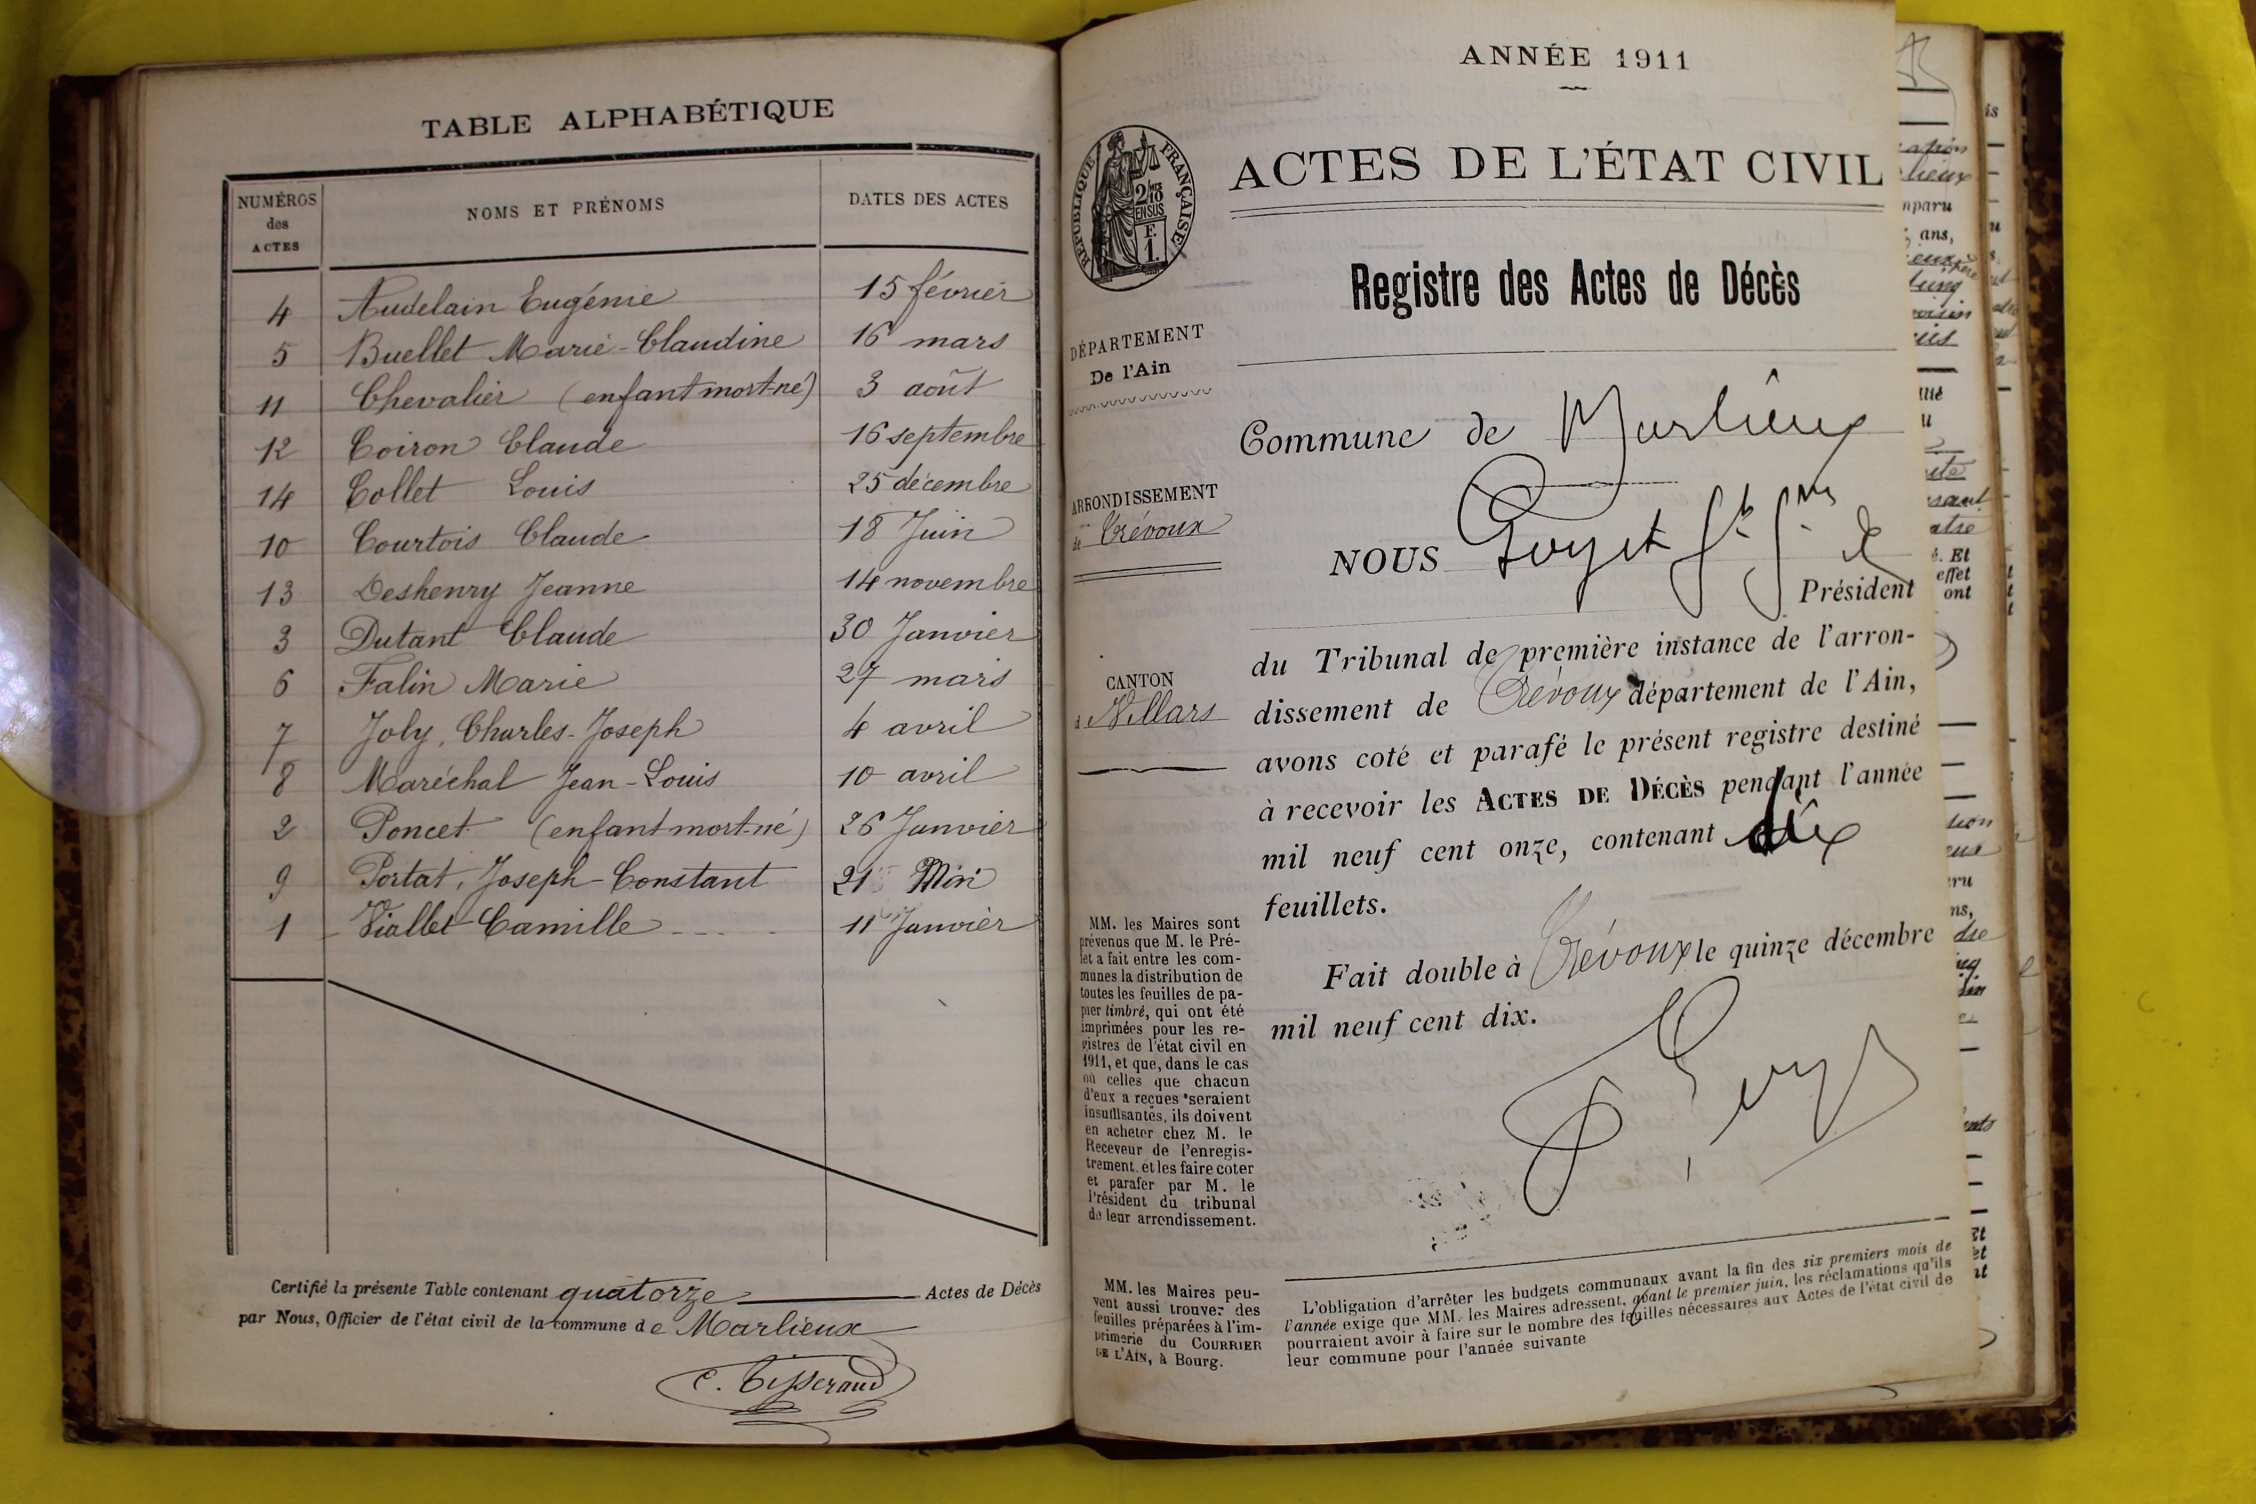 TABLE ALPHABÉTIQUE
NUMÉROS des ACTES
NOMS ET PRÉNOMS
DATES DES ACTES
4 Audelain Eugénie 15 février
5 Buellet Marie-Claudine 16 mars
11 Chevalier (enfant mort-né) 3 août
12 Coiron Claude 16 septembre
14 Collet Louis 25 décembre
10 Courtois Claude 18 Juin
13 Deshenry Jeanne 14 novembre
3 Dutant Claude 30 Janvier
6 Falin Marie 27 mars
7 Joly, Charles-Joseph 4 avril
8 Maréchal Jean-Louis 10 avril
2 Poncet (enfant mort-né) 26 Janvier
9 Portat, Joseph-Constant 21 Mai
1 Viallet Camille 11 Janvier
Certifié la présente Table contenant quatorze Actes de Décès
par Nous, Officier de l'état civil de la commune de Marlieux
C. Tisserand
ANNÉE 1911
RÉPUBLIQUE FRANÇAISE
2/10
EN SUS
F.
1.
ACTES DE L'ÉTAT CIVIL
Registre des Actes de Décès
DÉPARTEMENT
De l'Ain
ARRONDISSEMENT
de Trévoux
CANTON
d Villars
Commune de Marlieux
NOUS
Président
du Tribunal de première instance de l'arron-
dissement de Trévoux département de l'Ain,
avons coté et parafé le présent registre destiné
à recevoir les ACTES DE DÉCÈS pendant l'année
mil neuf cent onze, contenant dix
feuillets.
Fait double à Trévoux le quinze décembre
mil neuf cent dix.
MM. les Maires sont
prévenus que M. le Pré-
fet a fait entre les com-
munes la distribution de
toutes les feuilles de pa-
pier timbré, qui ont été
imprimées pour les re-
gistres de l'état civil en
1911, et que, dans le cas
où celles que chacun
d'eux a reçues seraient
insuffisantes, ils doivent
en acheter chez M. le
Receveur de l'enregis-
trement, et les faire coter
et parafer par M. le
Président du tribunal
de leur arrondissement.
MM. les Maires peu-
vent aussi trouver des
feuilles préparées à l'im-
primerie du COURRIER
DE L'AIN, à Bourg.
L'obligation d'arrêter les budgets communaux avant la fin des six premiers mois de
l'année exige que MM. les Maires adressent, avant le premier juin, les réclamations qu'ils
pourraient avoir à faire sur le nombre des feuilles nécessaires aux Actes de l'état civil de
leur commune pour l'année suivante